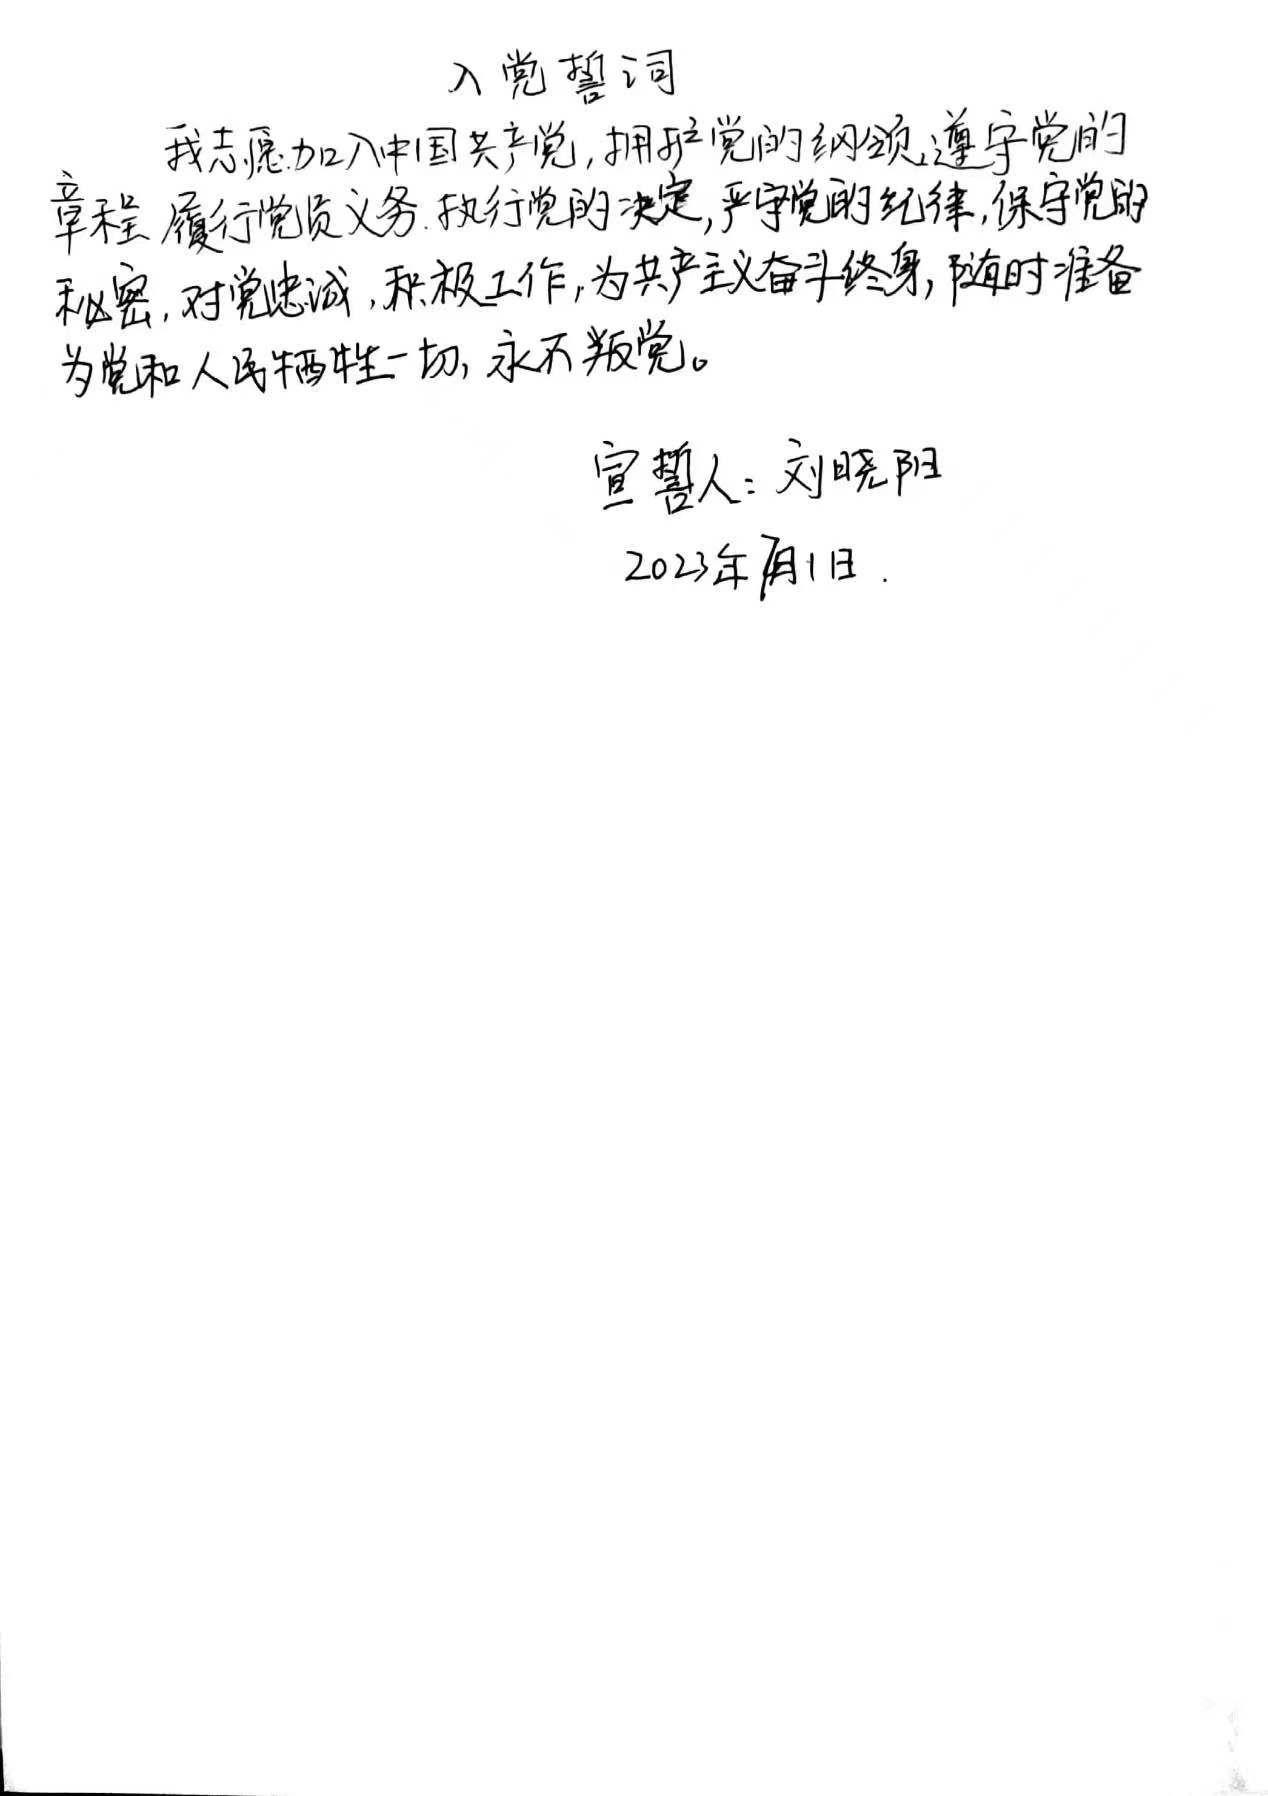 入党誓词
我志愿加入中国共产党,拥护党的纲领,遵守党的
章程 履行党员义务.执行党的决定,严守党的纪律,保守党的
秘密,对党忠诚,积极工作,为共产主义奋斗终身,随时准备
为党和人民牺牲一切,永不叛党。
宣誓人:刘晓阳
2023年7月1日.